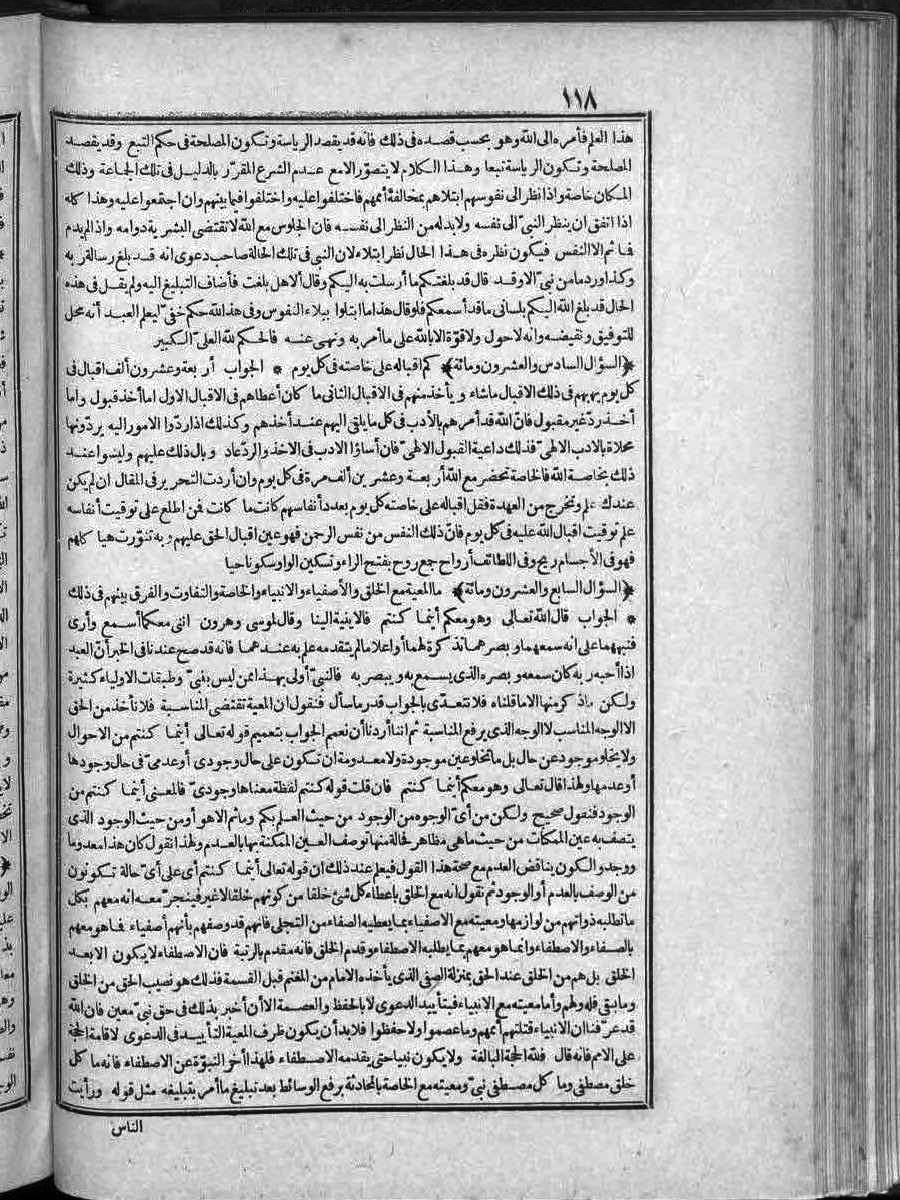 ١١٨
هذا العلم فأمره الى الله وهو بحسب قصده فى ذلك فانه قد يقصد الرياسة وتكون المصلحة فى حكم التبع وقد يقصد
المصلحة وتكون الرياسة تبعا وهذا الكلام لا يتصوّر الا مع عدم الشرع المقرّر بالدليل فى تلك الجماعة وذلك
المكان خاصة واذا نظر الى نفوسهم ابتلاهم بمخالفة أممهم فاختلفوا عليه واختلفوا فيما بينهم وان اجتمعوا عليه وهذا كله
اذا اتفق ان ينظر النبىّ الى نفسه ولا بد له من النظر الى نفسه فان الجلوس مع الله لا تقتضى البشرية دوامه واذا لم يدم
فما ثم الا النفس فيكون نظره فى هذا الحال نظر ابتلاء لان النبى فى تلك الحالة صاحب دعوى انه قد بلغ رسالة ربه
وكذا ورد ما من نبىّ الا وقد قال قد بلغتكم ما أرسلت به اليكم وقال ألا هل بلغت فأضاف التبليغ اليه ولم يقل فى هذه
الحال قد بلغ الله اليكم بلسانى ما قد أسمعكم فلو قال هذا ما ابتلوا ببلاء النفوس وفى هذا لله حكم خفىّ ليعلم العبد أنه محل
للتوفيق ونقيضه وانه لا حول ولا قوّة الا بالله على ما أمر به ونهى عنه فالحكم لله العلىّ الكبير
﴿السؤال السادس والعشرون ومائة﴾ كم اقباله على خاصته فى كل يوم * الجواب أربعة وعشرون ألف اقبال فى
كل يوم يهبهم فى ذلك الاقبال ما شاء ويأخذ منهم فى الاقبال الثانى ما كان أعطاهم فى الاقبال الاول اما أخذ قبول واما
أخذ ردّ غير مقبول فانّ الله قد أمرهم بالأدب فى كل ما يلقى اليهم عند أخذهم وكذلك اذا ردّوا الامور اليه يردّونها
محلاة بالادب الالهىّ فذلك داعية القبول الالهىّ فان أساؤا الادب فى الاخذ والردّ عاد وبال ذلك عليهم وليسوا عند
ذلك بخاصة الله فالخاصة تحضر مع الله أربعة وعشرين ألف مرة فى كل يوم وان أردت التحرير فى المقال ان لم يكن
عندك علم وتخرج من العهدة فقل اقباله على خاصته كل يوم بعدد أنفاسهم كانت ما كانت فمن اطلع على توقيت أنفاسه
علم توقيت اقبال الله عليه فى كل يوم فانّ ذلك النفس من نفس الرحمن فهو عين اقبال الحق عليهم وبه تنوّرت هياكلهم
فهو فى الأجسام ريح وفى اللطائف أرواح جمع روح بفتح الراء وتسكين الواو سكونا حيا
﴿السؤال السابع والعشرون ومائة﴾ ما المعية مع الخلق والأصفياء والانبياء والخاصة والتفاوت والفرق بينهم فى ذلك
* الجواب قال الله تعالى وهو معكم أينما كنتم فالاينية الينا وقال لموسى وهرون اننى معكما أسمع وأرى
فنبههما على انه سمعهما وبصرهما تذكرة لهما أو اعلاما لم يتقدمه علم به عندهما فانه قد صح عندنا فى الخبر أنّ العبد
اذا أحبه ربه كان سمعه وبصره الذى يسمع به ويبصر به فالنبىّ أولى بهذا ممن ليس بنبىّ وطبقات الاولياء كثيرة
ولكن ما ذكر منها الا ما قلناه فلا نتعدّى بالجواب قدر ما سأل فنقول ان المعية تقتضى المناسبة فلا نأخذ من الحق
الا الوجه المناسب لا الوجه الذى يرفع المناسبة ثم اننا أردنا أن نعمم الجواب بتعميم قوله تعالى أينما كنتم من الاحوال
ولا يخلو موجود عن حال بل ما تخلو عين موجودة ولا معدومة ان تكون على حال وجودى أو عدمىّ فى حال وجودها
أو عدمها ولهذا قال تعالى وهو معكم أينما كنتم فان قلت قوله كنتم لفظة معناها وجودىّ فالمعنى أينما كنتم من
الوجود فنقول صحيح ولكن من أىّ الوجوه من الوجود من حيث العلم بكم وما ثم الا هو أو من حيث الوجود الذى
يتصف به عين الممكنات من حيث ما هى مظاهر فحالة منها توصف العين الممكنة بها بالعدم ولهذا نقول كان هذا معدوما
ووجد والكون يناقض العدم مع صحة هذا القول فيعلم عند ذلك ان قوله تعالى أينما كنتم أى على أىّ حالة تكونون
من الوصف بالعدم أو الوجود ثم نقول انه مع الخلق باعطاء كل شئ خلقا من كونهم خلقا لا غير فينجرّ معه انه معهم بكل
ما تطلبه ذواتهم من لوازمها ومعيته مع الاصفياء بما يعطيه الصفاء من التجلى فانهم قد وصفهم بأنهم أصفياء فما هو معهم
بالصفاء والاصطفاء وانما هو معهم بما يطلبه الاصطفاء وقدم الخلق فانه مقدم بالرتبة فان الاصطفاء لا يكون الا بعد
الخلق بل هم من الخلق عند الحق بمنزلة الصفى الذى يأخذه الامام من المغنم قبل القسمة فذلك هو نصيب الحق من الخلق
وما بقى فله ولهم وأما معيته مع الانبياء فبتأييد الدعوى لا بالحفظ والعصمة الا أن أخبر بذلك فى حق نبىّ معين فان الله
قد عرّفنا ان الانبياء قتلتهم أممهم وما عصموا ولا حفظوا فلا بد أن يكون ظرف المعية التأييد فى الدعوى لاقامة الحجة
على الامم فانه قال فلله الحجة البالغة ولا يكون نبيا حتى يقدمه الاصطفاء فلهذا أخر النبوّة عن الاصطفاء فانه ما كل
خلق مصطفى وما كل مصطفى نبىّ ومعيته مع الخاصة بالمحادثة برفع الوسائط بعد تبليغ ما أمر بتبليغه مثل قوله ورأيت
الناس